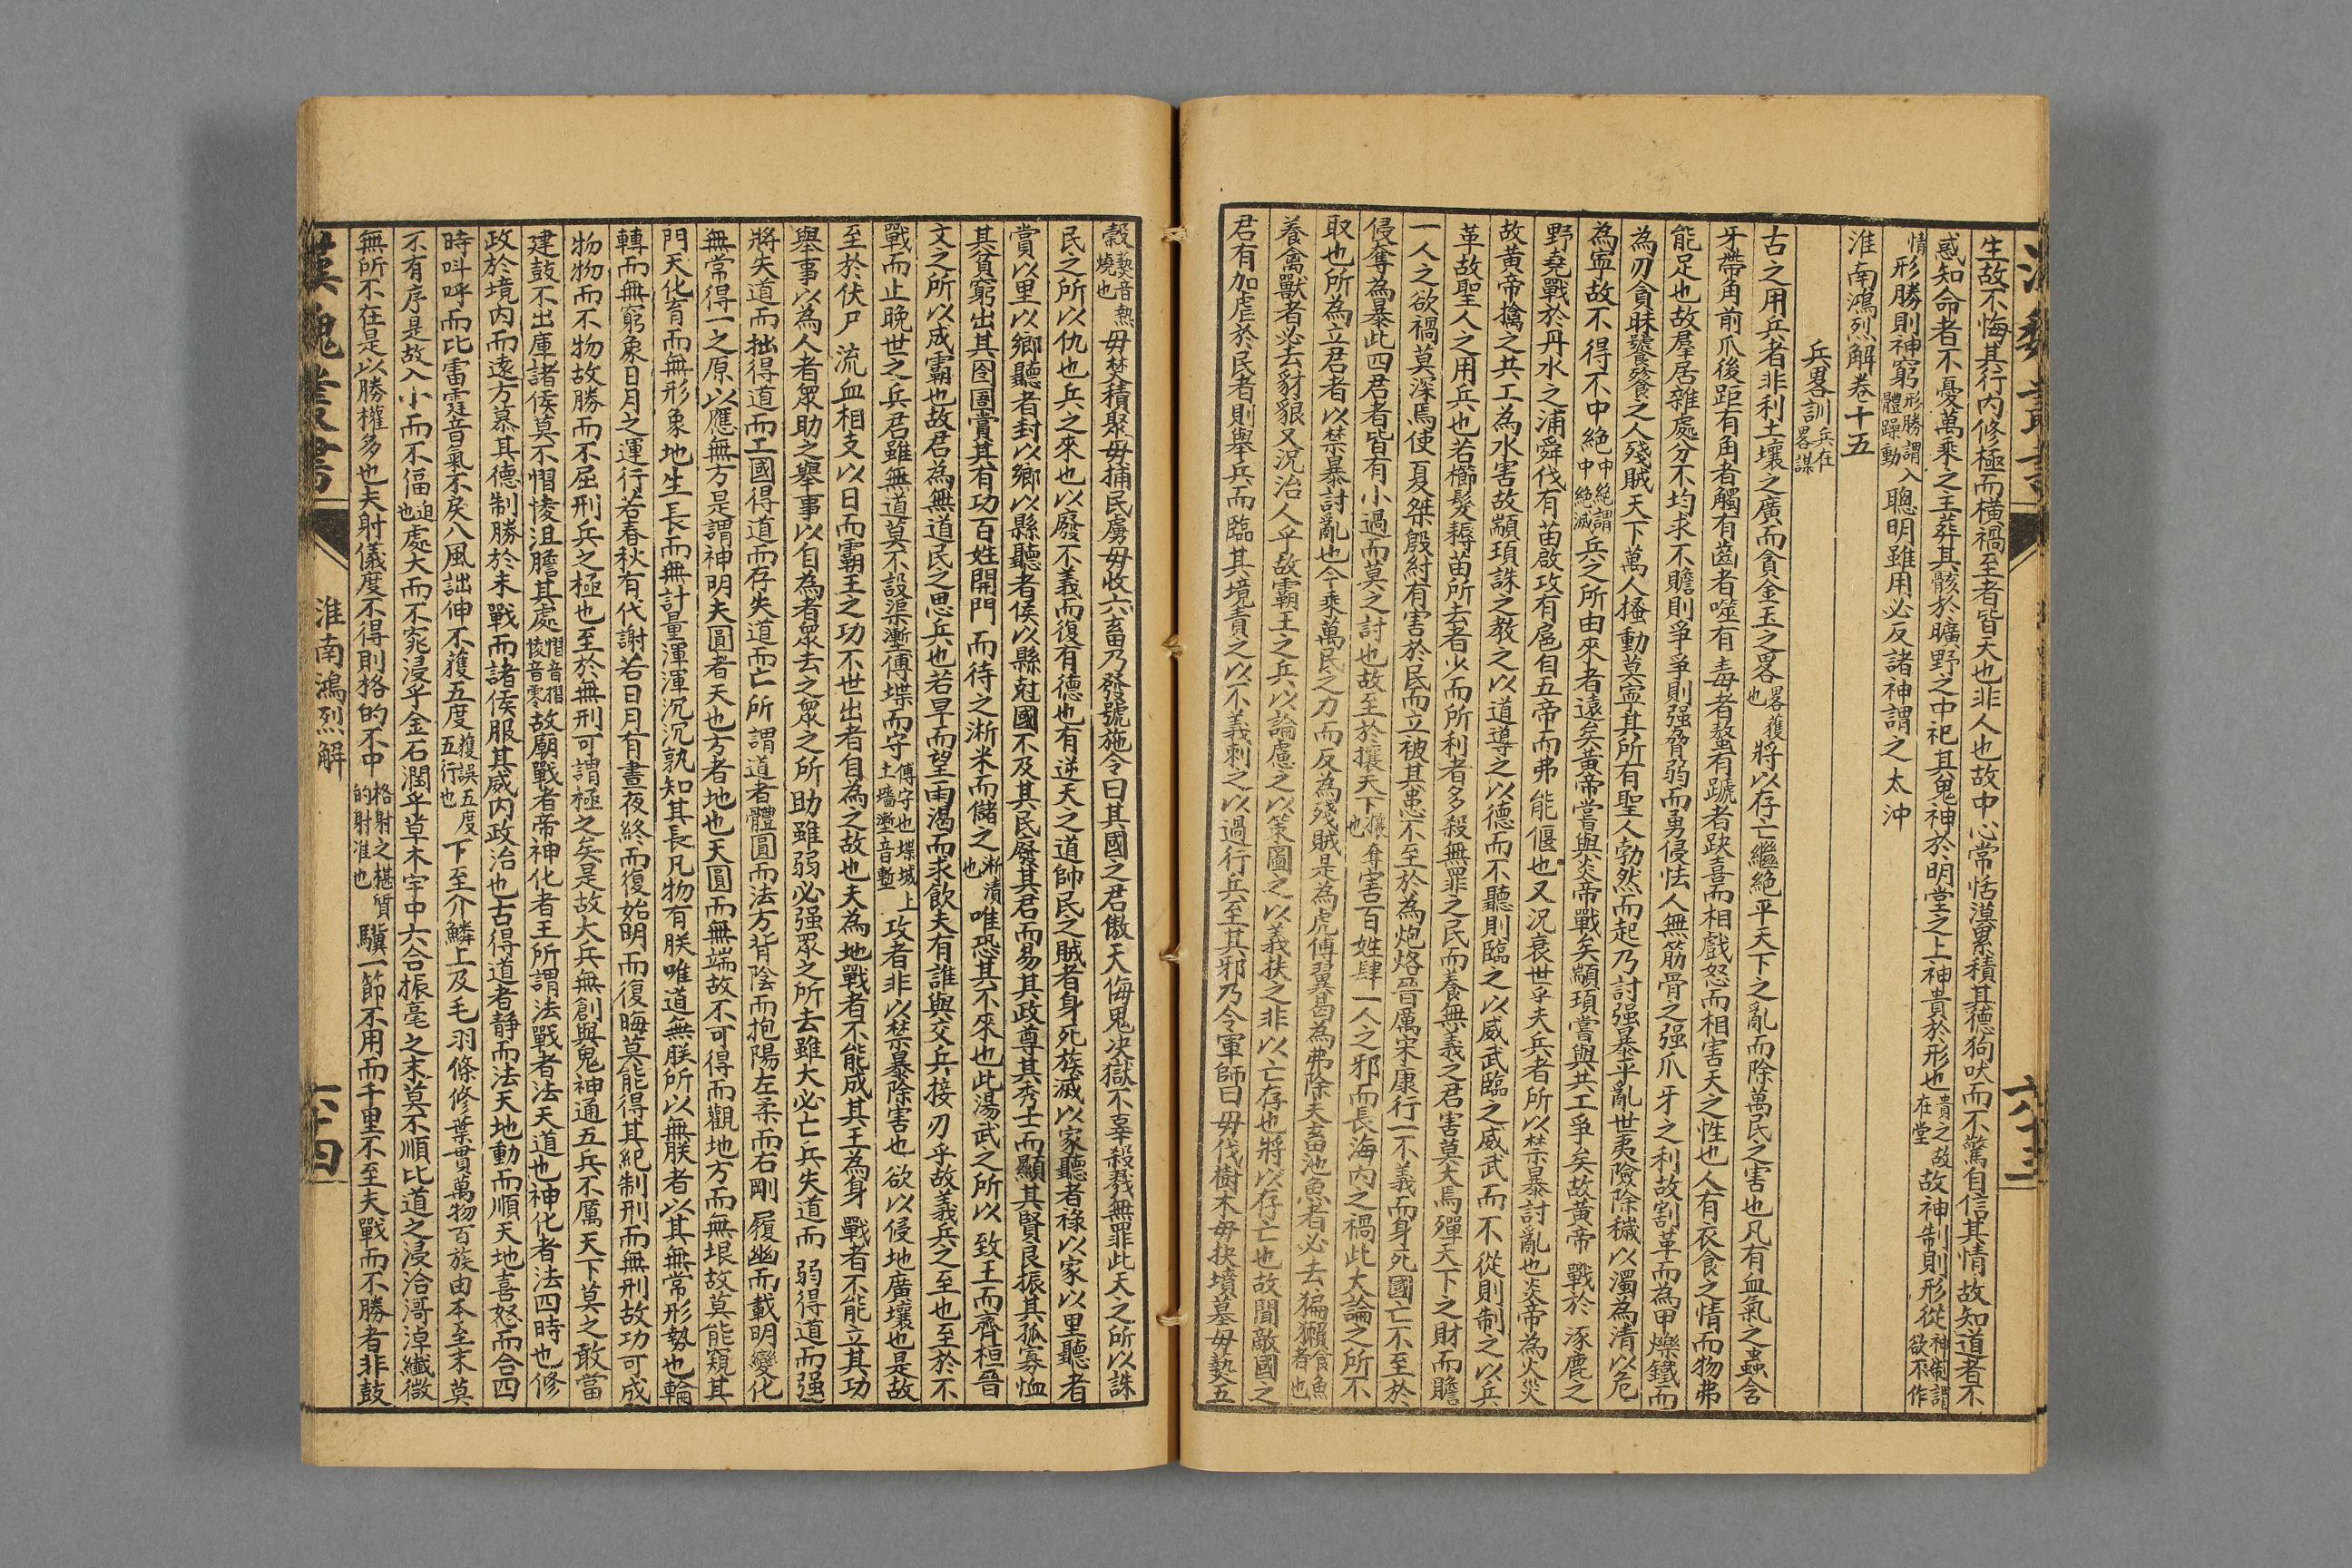 生故不悔其行内修極而橫禍至者皆天也非人也故中心常恬漠累積其德狗吠而不驚自信其情故知道者不
惑知命者不憂萬乘之主葬其骸於曠野之中祀其鬼神於明堂之上神貴於形也貴之故在堂故神制則形從神制謂欲不作
情形勝則神窮形勝謂體躁動入聰明雖用必反諸神謂之太沖
淮南鴻烈解卷十五
兵畧訓兵在畧謀
古之用兵者非利土壤之廣而貪金玉之畧畧獲也將以存亡繼絕平天下之亂而除萬民之害也凡有血氣之蟲含
牙帶角前爪後距有角者觸有齒者噬有毒者螫有蹏者趹喜而相戲怒而相害天之性也人有衣食之情而物弗
能足也故羣居雜處分不均求不贍則爭爭則强脅弱而勇侵怯人無筋骨之强爪牙之利故割革而為甲爍鐵而
為刃貪昧饕餮之人殘賊天下萬人搔動莫寧其所有聖人勃然而起乃討强暴平亂世夷險除穢以濁為清以危
為寧故不得不中絕中絕謂中絕滅兵之所由來者遠矣黃帝嘗與炎帝戰矣顓頊嘗與共工爭矣故黃帝戰於涿鹿之
野堯戰於丹水之浦舜伐有苗啟攻有扈自五帝而弗能偃也又況衰世乎夫兵者所以禁暴討亂也炎帝為火災
故黃帝擒之共工為水害故顓頊誅之教之以道導之以德而不聽則臨之以威武臨之威武而不從則制之以兵
革故聖人之用兵也若櫛髮耨苗所去者少而所利者多殺無罪之民而養無義之君害莫大焉殫天下之財而贍
一人之欲禍莫深焉使夏桀殷紂有害於民而立被其患不至於為炮烙晉厲宋康行一不義而身死國亡不至於
侵奪為暴此四君者皆有小過而莫之討也故至於攘天下攘奪也害百姓肆一人之邪而長海内之禍此大論之所不
取也所為立君者以禁暴討亂也今乘萬民之力而反為殘賊是為虎傅翼曷為弗除夫畜池魚者必去猵獺食魚者也
養禽獸者必去豺狼又況治人乎故霸王之兵以論慮之以策圖之以義扶之非以亡存也將以存亡也故聞敵國之
君有加虐於民者則舉兵而臨其境責之以不義刺之以過行兵至其邪乃令軍師曰毋伐樹木毋抉墳墓毋爇五
穀爇音熱燒也毋焚積聚毋捕民虜毋收六畜乃發號施令曰其國之君傲天侮鬼决獄不辜殺戮無罪此天之所以誅
民之所以仇也兵之來也以廢不義而復有德也有逆天之道帥民之賊者身死族滅以家聽者祿以家以里聽者
賞以里以鄉聽者封以鄉以縣聽者侯以縣尅國不及其民廢其君而易其政尊其秀士而顯其賢良振其孤寡恤
其貧窮出其囹圄賞其有功百姓開門而待之淅米而儲之淅漬也唯恐其不來也此湯武之所以致王而齊桓晉
文之所以成霸也故君為無道民之思兵也若旱而望雨渴而求飲夫有誰與交兵接刃乎故義兵之至也至於不
戰而止晚世之兵君雖無道莫不設渠壍傅堞而守傅守也堞城上土墻壍音塹攻者非以禁暴除害也欲以侵地廣壤也是故
至於伏尸流血相支以日而霸王之功不世出者自為之故也夫為地戰者不能成其王為身戰者不能立其功
舉事以為人者衆助之舉事以自為者衆去之衆之所助雖弱必强衆之所去雖大必亡兵失道而弱得道而强
將失道而拙得道而工國得道而存失道而亡所謂道者體圓而法方背陰而抱陽左柔而右剛履幽而載明變化
無常得一之原以應無方是謂神明夫圓者天也方者地也天圓而無端故不可得而觀地方而無垠故莫能窺其
門天化育而無形象地生長而無計量渾渾沉沉孰知其長凡物有朕唯道無朕所以無朕者以其無常形勢也輪
轉而無窮象日月之運行若春秋有代謝若日月有晝夜終而復始明而復晦莫能得其紀制刑而無刑故功可成
物物而不物故勝而不屈刑兵之極也至於無刑可謂極之矣是故大兵無創與鬼神通五兵不厲天下莫之敢當
建鼓不出庫諸侯莫不慴㥄沮膽其處慴音摺㥄音零故廟戰者帝神化者王所謂法戰者法天道也神化者法四時也修
政於境内而遠方慕其德制勝於未戰而諸侯服其威内政治也古得道者靜而法天地動而順天地喜怒而合四
時叫呼而比雷霆音氣不戾八風詘伸不獲五度獲誤五度五行也下至介鱗上及毛羽條修葉貫萬物百族由本至末莫
不有序是故入小而不偪偪迫也處大而不窕浸乎金石潤乎草木宇中六合振毫之末莫不順比道之浸洽滒淖纖微
無所不在是以勝權多也夫射儀度不得則格的不中格射之椹質的射准也驥一節不用而千里不至夫戰而不勝者非鼓
漢魏叢書
淮南鴻烈解
六十四